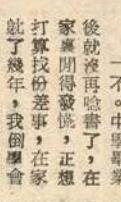 一不。中學畢業
後就沒再唸書了，在
家裏閒得發慌，正想
打算找份差事，在家
躭了幾年，我倒學會